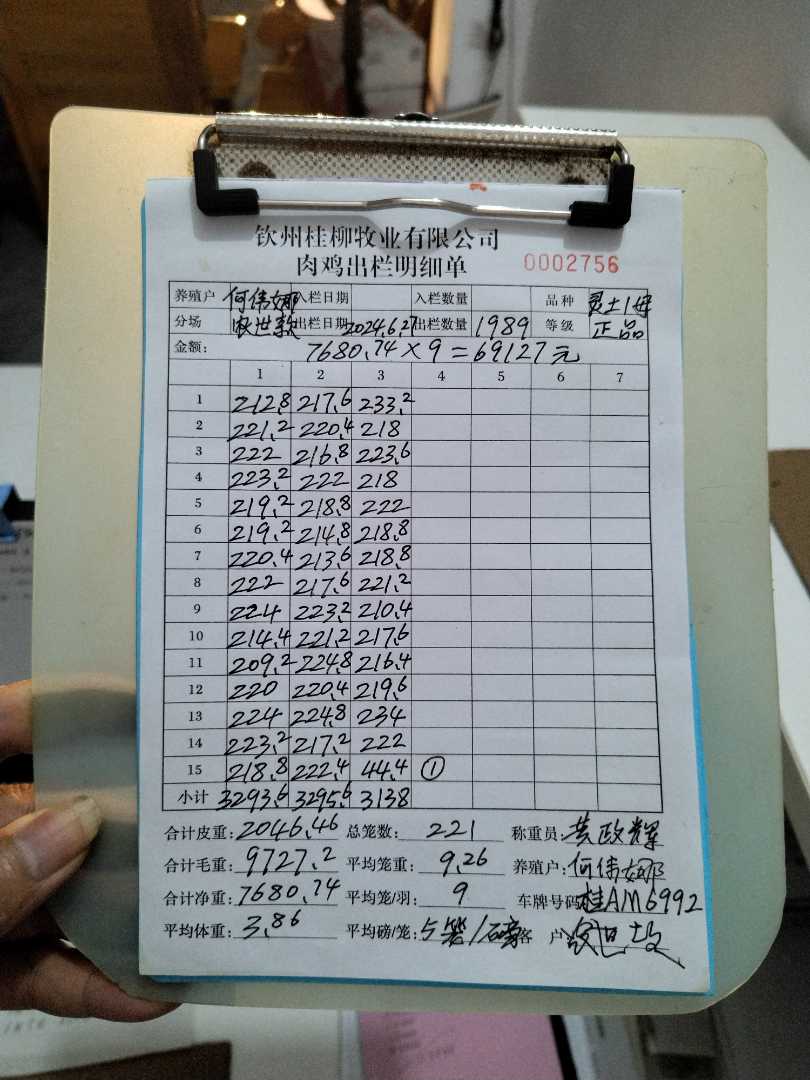 钦州桂柳牧业有限公司
肉鸡出栏明细单 0002756
养殖户 何伟娜 入栏日期 入栏数量 品种 灵土1母
分场 出栏日期 2024.6.27 出栏数量 1989 等级 正品
金额: 7680.74×9=69127元
1 2 3 4 5 6 7
1 212.8 217.6 233.2
2 221.2 220.4 218
3 222 216.8 223.6
4 223.2 222 218
5 219.2 218.8 222
6 219.2 214.8 218.8
7 220.4 213.6 218.8
8 222 217.6 221.2
9 224 223.2 210.4
10 214.4 221.2 217.6
11 209.2 224.8 216.4
12 220 220.4 219.6
13 224 224.8 234
14 223.2 217.2 222
15 218.8 222.4 44.4 ①
小计 3293.6 3295.6 3138
合计皮重: 2046.46 总笼数: 221 称重员: 黄政辉
合计毛重: 9727.2 平均笼重: 9.26 养殖户: 何伟娜
合计净重: 7680.74 平均笼/羽: 9 车牌号码: 桂AM6992
平均体重: 3.86 平均磅/笼: 5笼/磅 客户: